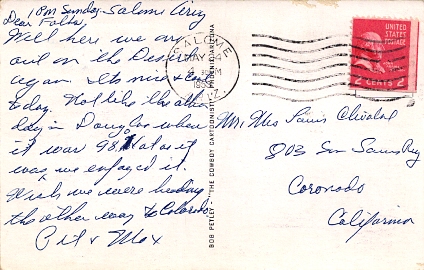 1 PM Sunday - Salome Ariz
Dear Folks,
Well here we are
out on the Desert
again. Its nice & cool
today. Not like the other
day in Douglas when
it was 98. Hot as it
was we enjoyed it.
Wish we were heading
the other way to Colorado
Pit & Max
BOB PETLEY - "THE COWBOY CARTOONIST" - PHOENIX, ARIZONA
SALOME
MAY
UNITED
STATES
POSTAGE
2 CENTS 2
Mr Mrs
803 San Luis Rey
Coronado
California